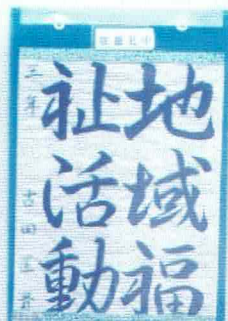 地域福
祉活動
三年